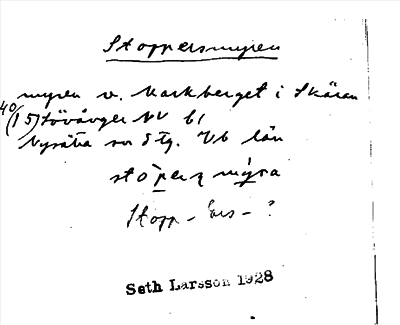 Stoppersmyren
myren v. Markberget i Skäran
40
(15) Lövånger NV bl
Nysätra sn Stg. Vb län
stòperz mýra
Stopp - Ers - ?
Seth Larsson 1928